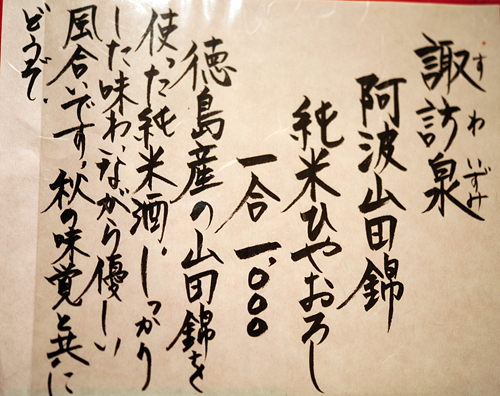 諏訪泉
すわいずみ
阿波山田錦
純米ひやおろし
一合 一,000
徳島産の山田錦を
使った純米酒。しっかり
した味わいながら優しい
風合いです。秋の味覚と共に
どうぞ。